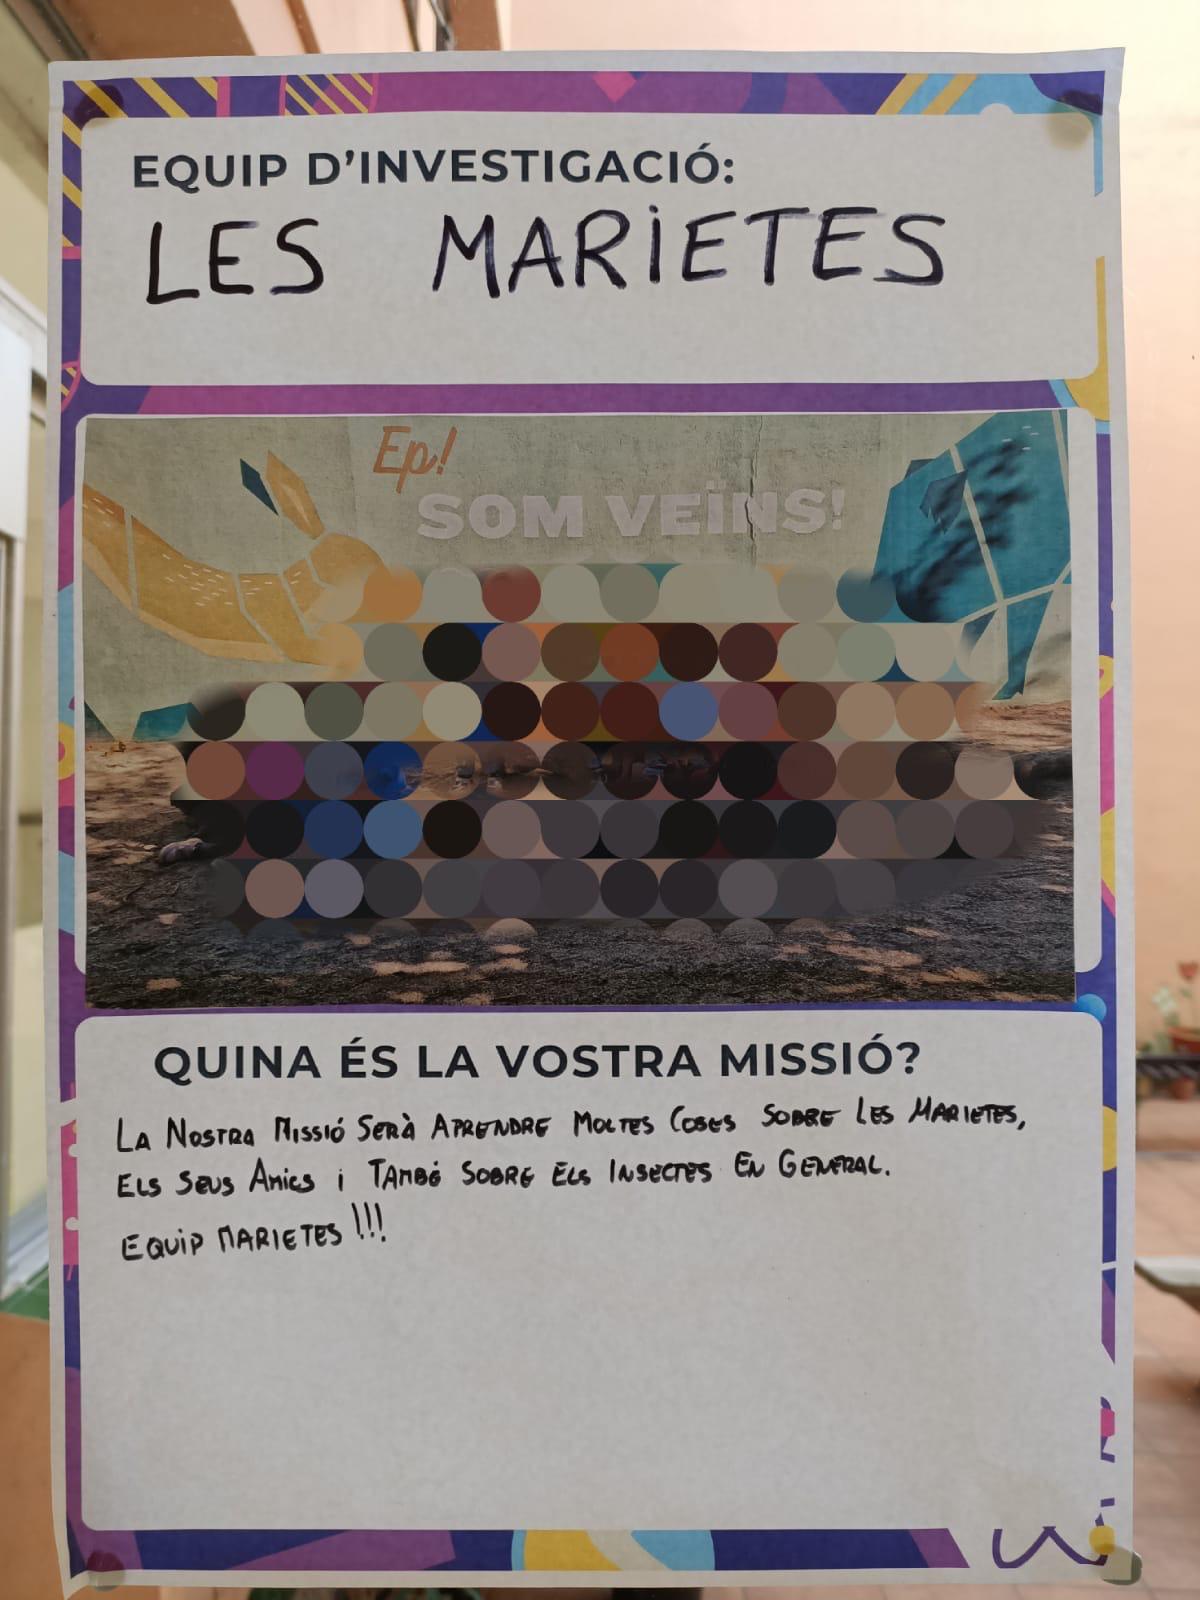 EQUIP D'INVESTIGACIÓ:
LES MARIETES
Ep!
SOM VEÏNS!
QUINA ÉS LA VOSTRA MISSIÓ?
LA NOSTRA MISSIÓ SERÀ APRENDRE MOLTES COSES SOBRE LES MARIETES,
ELS SEUS AMICS i TAMBÉ SOBRE ELS INSECTES EN GENERAL.
EQUIP MARIETES!!!